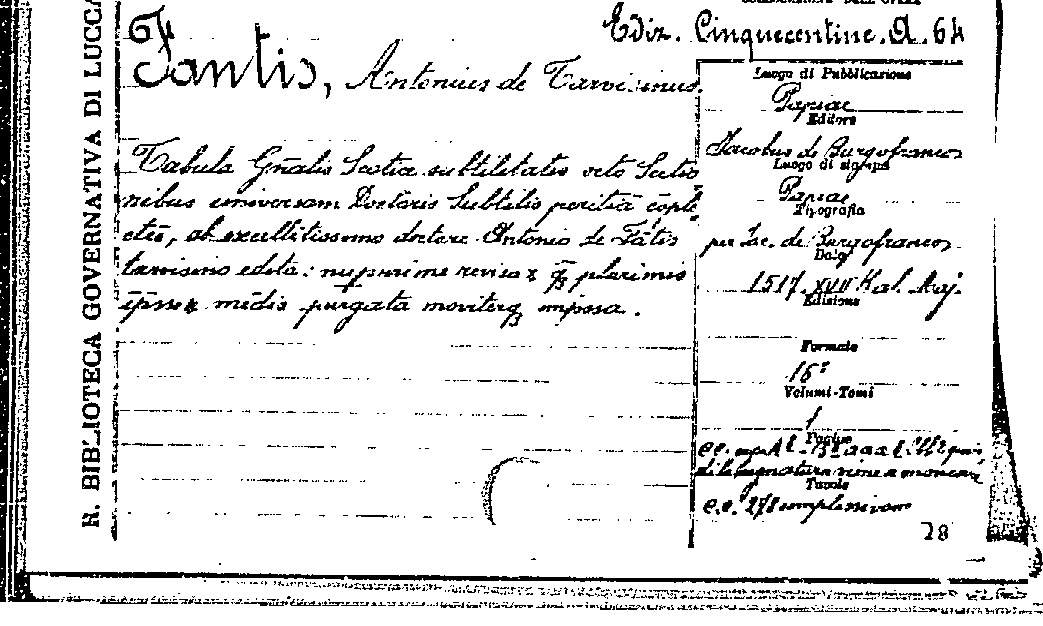 R. BIBLIOTECA GOVERNATIVA DI LUCCA
Ediz. Cinquecentine. A. 64
Fantis, Antonius de Tarvisinus.
Tabula Gñalis Scotice subtilitatis octo Sectio
nibus universam Doctoris Subtilis peritiã cõple
ctẽs, ab excellẽtissimo doctore Antonio de Fãtis
tarvisino edita: nuperrime revisa
purgata noviterq̃ impssa.
Luogo di Pubblicazione
Papiae
Editore
Jacobus de Burgofrancos
Luogo di stampa
Papiae
Tipografia
per Jac. de Burgofrancos
Data
1517. XVII Kal. Maj.
Edizione
Formato
16°
Volumi-Tomi
1
Pagine
di la segnatura
Tavole
c.c. 278 complessivam
28